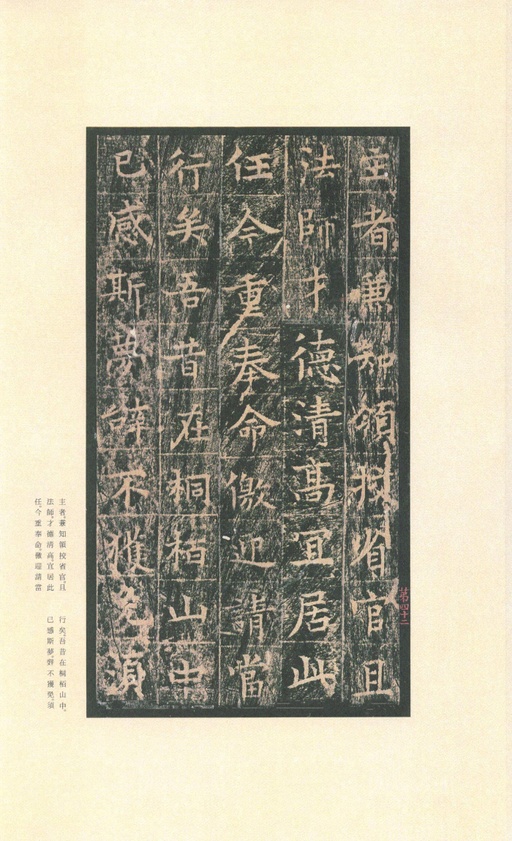 主者兼知領校省官且
法師才德清高冝居此
任今重奉命儌迎請當
行矣吾昔在桐栢山中
已感斯夢辞不獲免湏
主者，兼知領校省官，且
法師，才德清高，宜居此
任，今重奉命，儌迎請當
行矣，吾昔在桐栢山中，
已感斯夢，辤不獲免，須